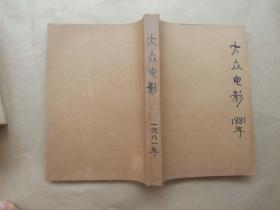 大众电影
一九八一年
大众电影
1981
年